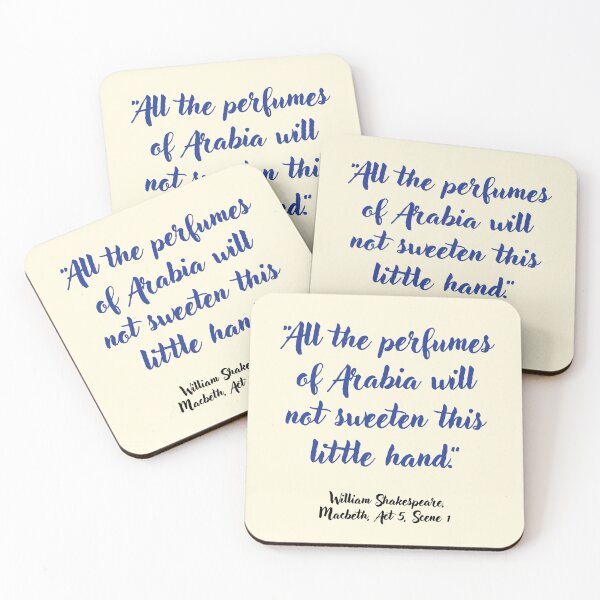 "All the perfumes
of Arabia will
not sweeten
"All the perfumes
of Arabia will
not sweeten this
little hand."
"All the perfumes
of Arabia will
not sweeten this
little
William
Macbeth, Act
"All the perfumes
of Arabia will
not sweeten this
little hand."
William Shakespeare,
Macbeth, Act 5, Scene 1